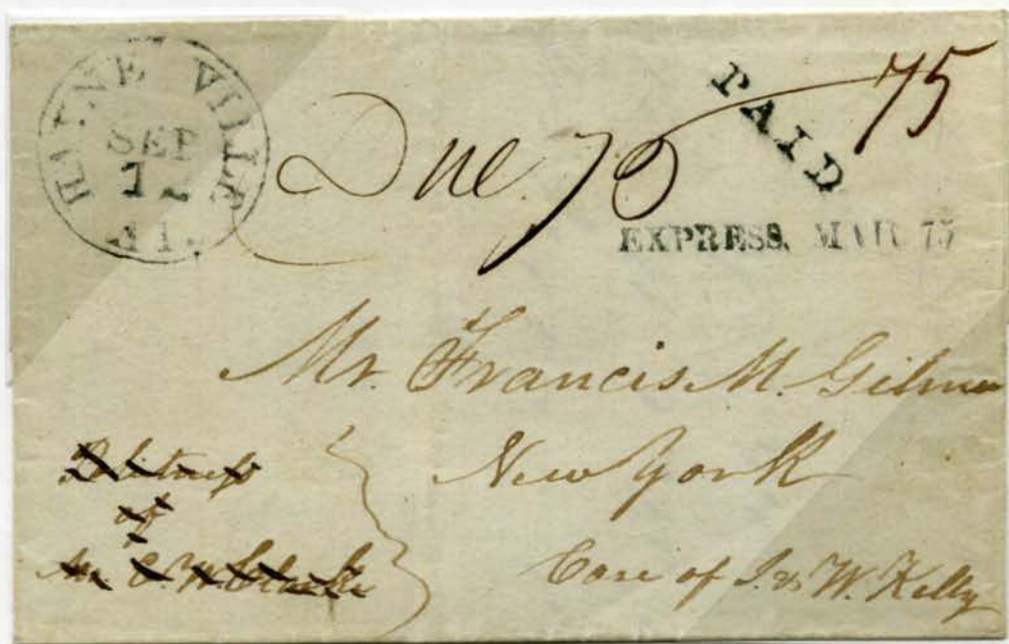 HAYNE VILLE
SEP
12
Al.
Due 75
PAID
75
EXPRESS, MAIL 75
Mr. Francis M. Gilmer
New York
Care of J. & W. Kelly
of
Mr C. W.